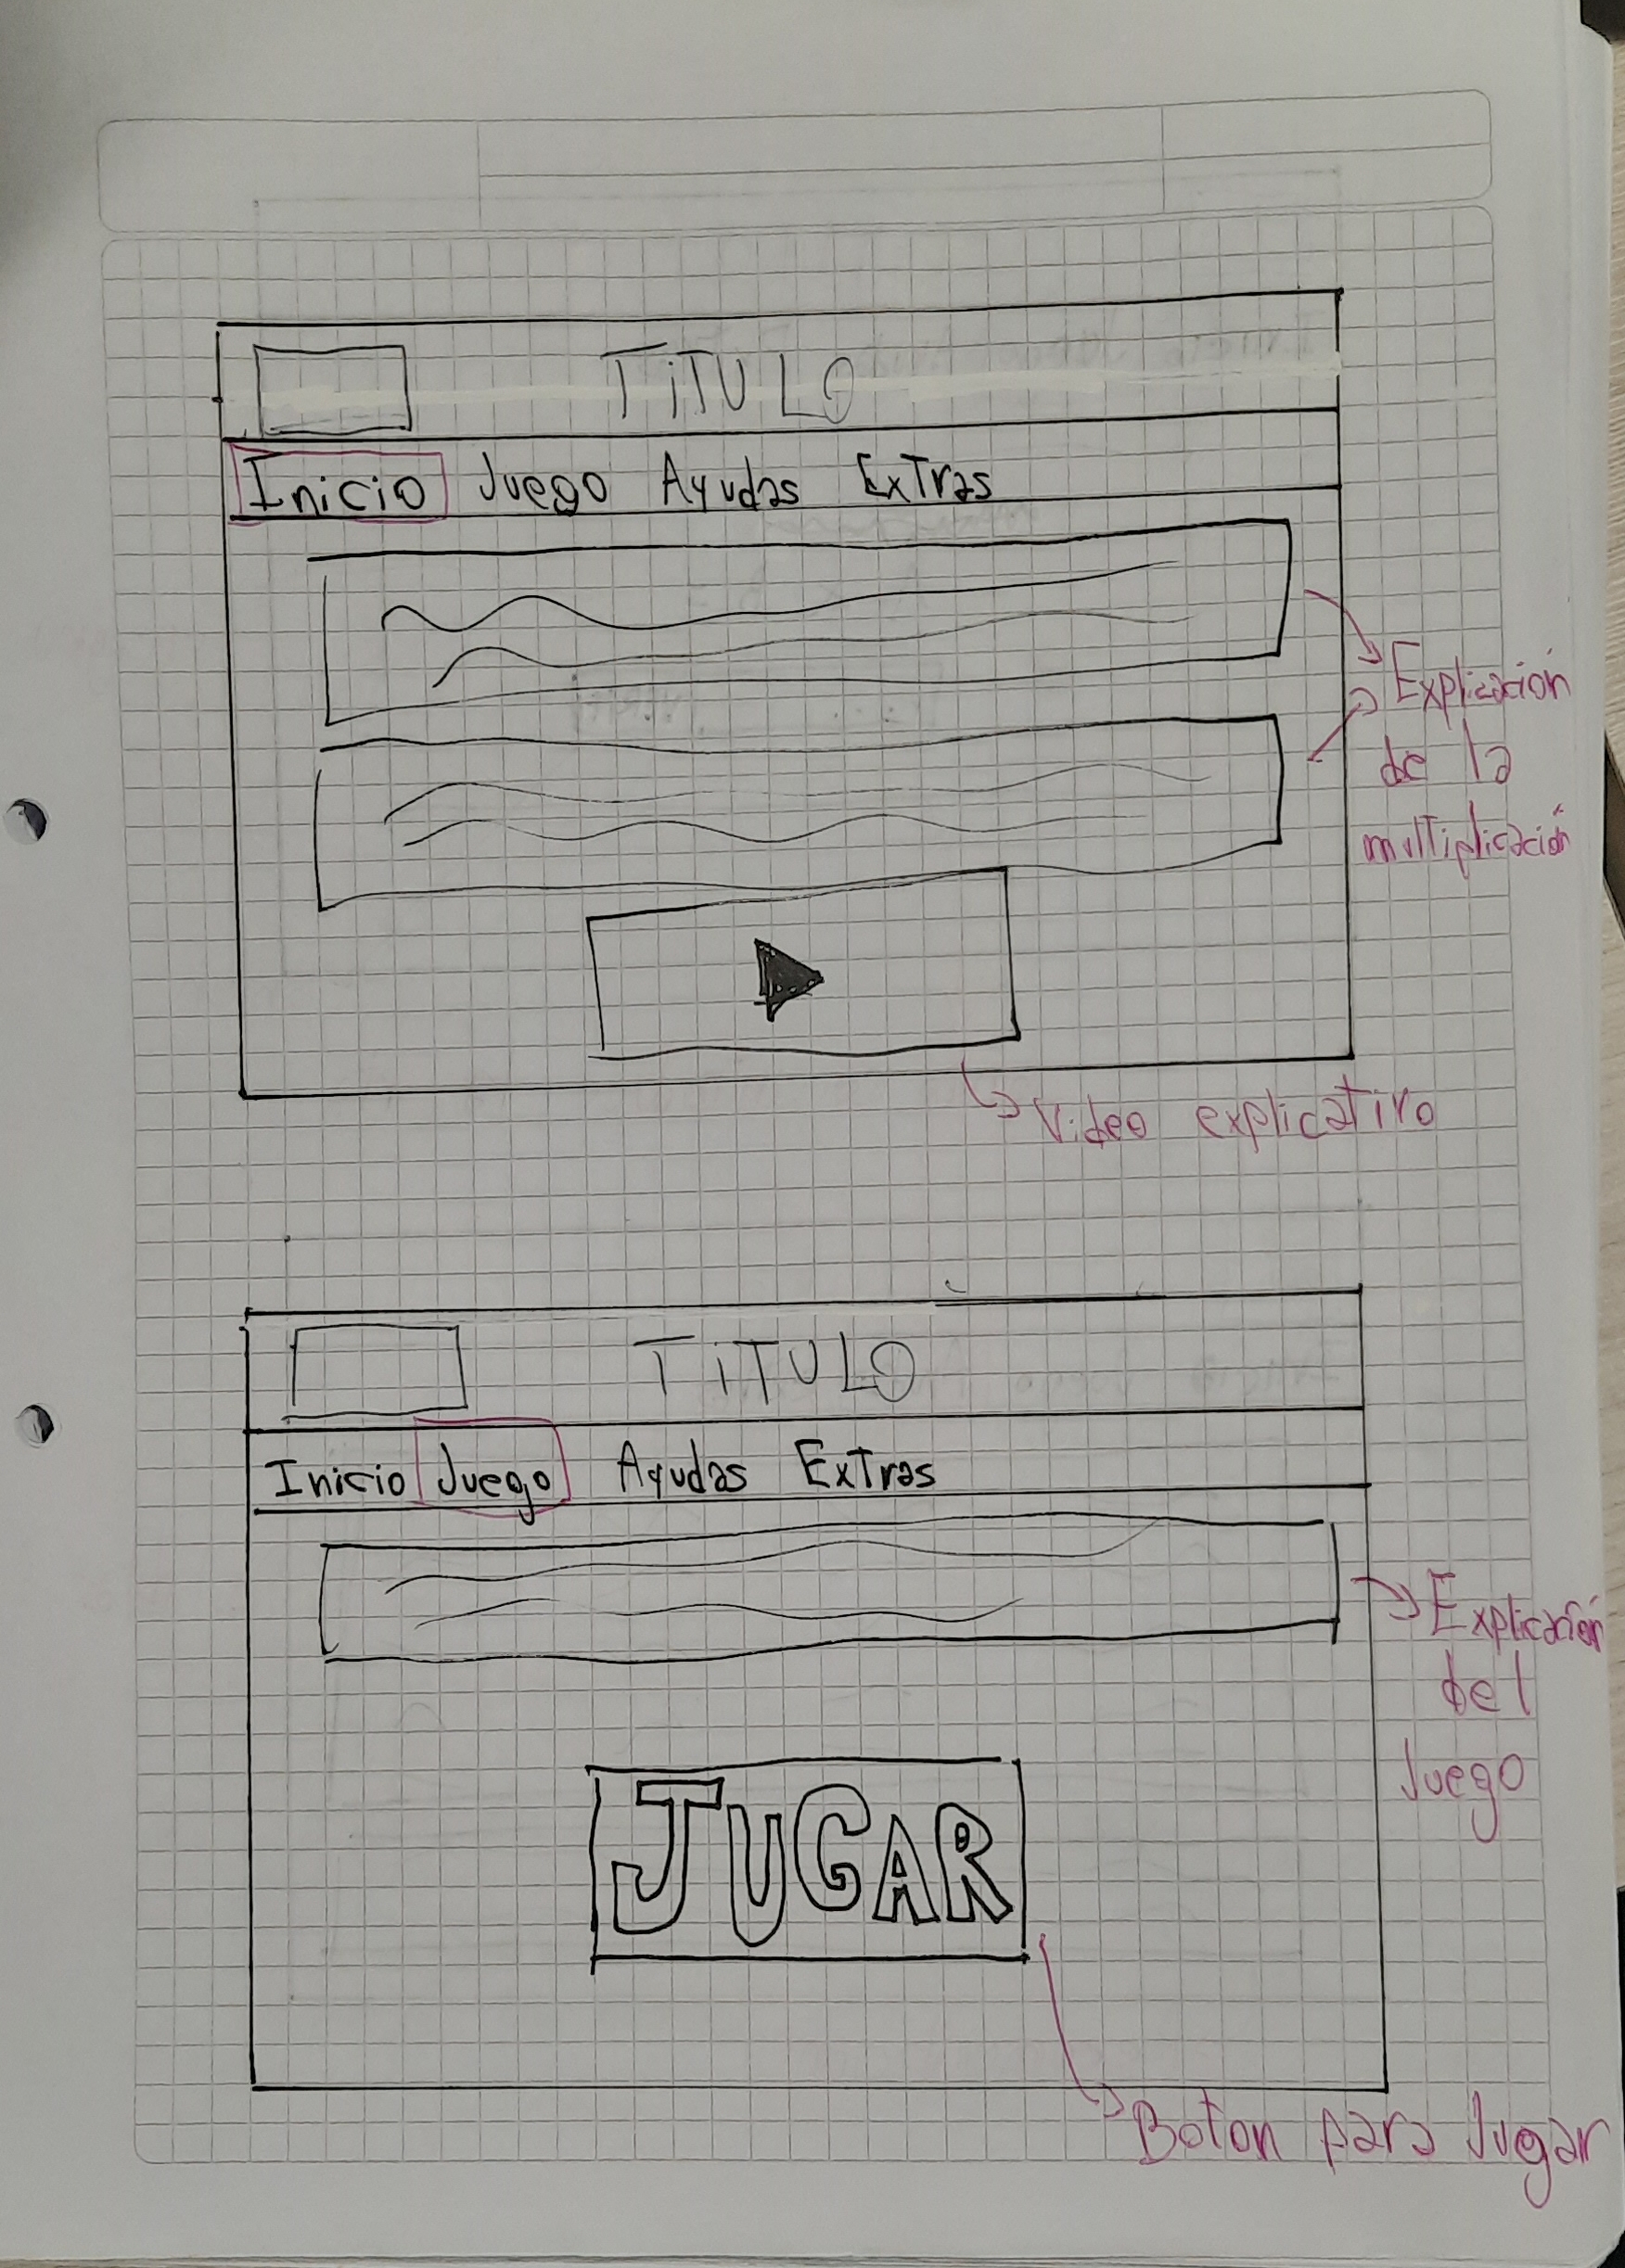 TiTULO
Inicio Juego Ayudas ExTras
Explicación
de la
multiplicación
Video explicativo
TiTULO
Inicio Juego Ayudas ExTras
Explicación
del
Juego
JUGAR
Boton para Jugar